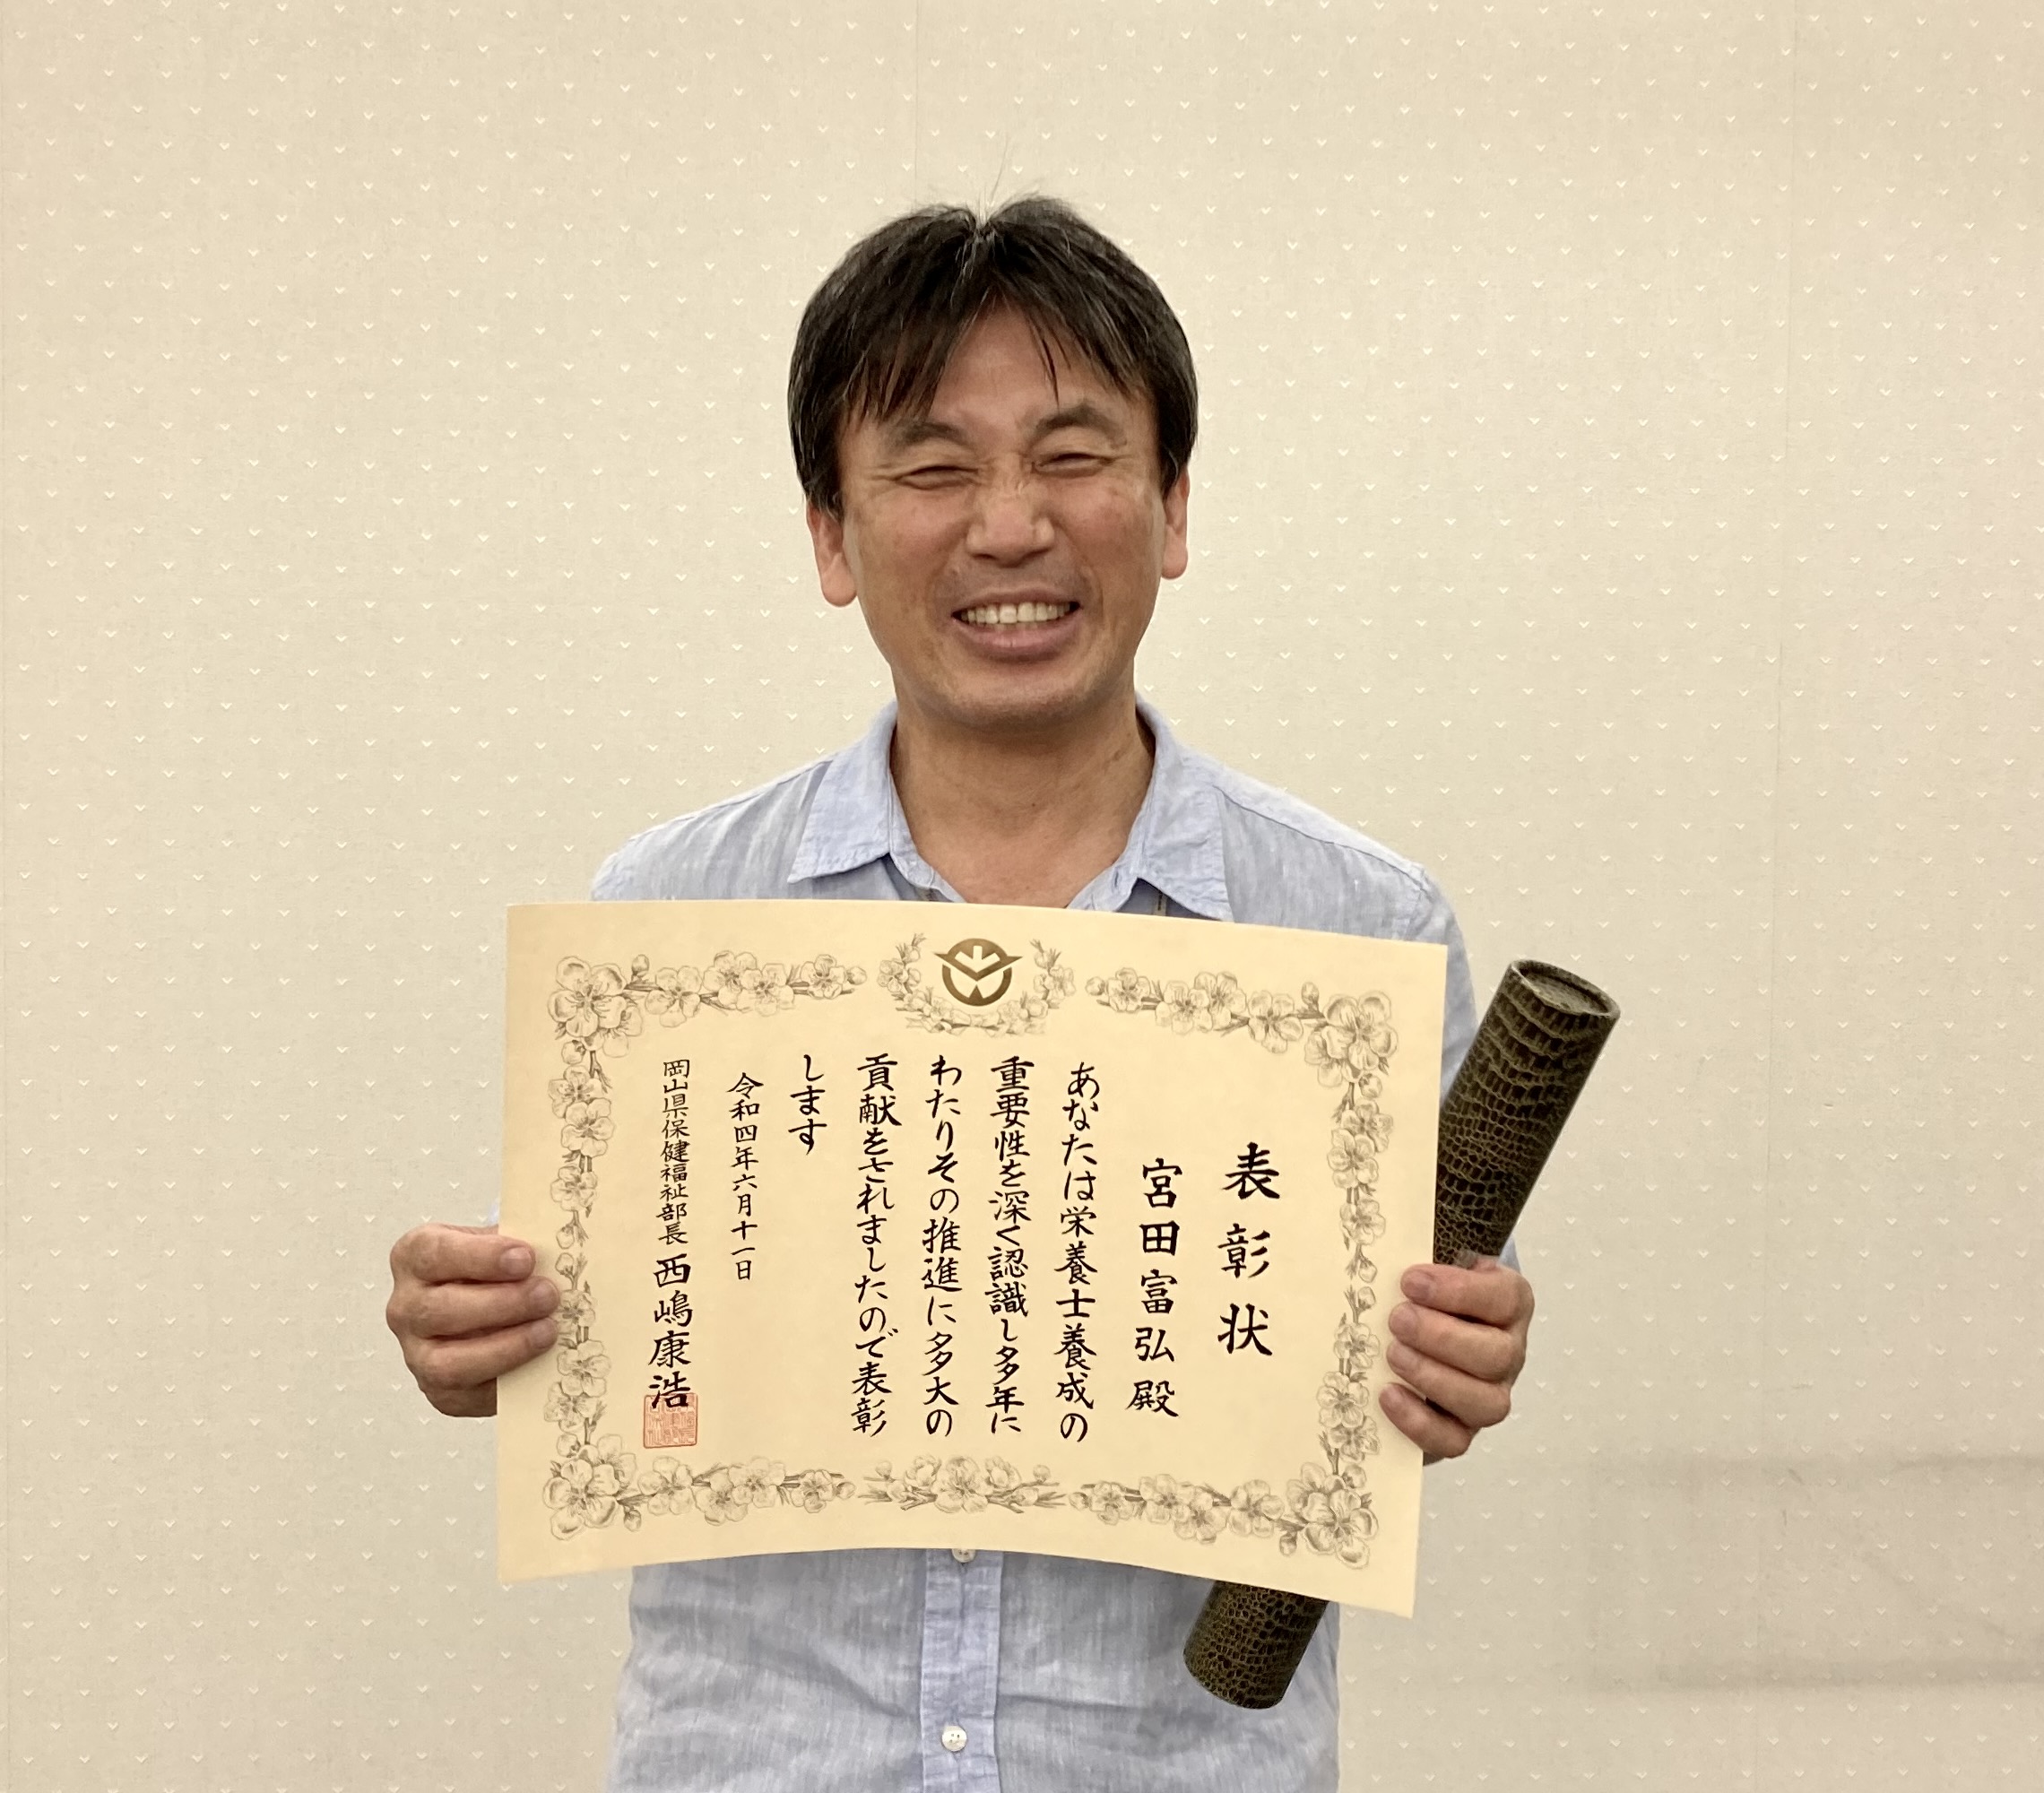 表彰状
宮田富弘殿
あなたは栄養士養成の
重要性を深く認識し多年に
わたりその推進に多大の
貢献をされましたので表彰
します
令和四年六月十一日
岡山県保健福祉部長 西嶋康浩